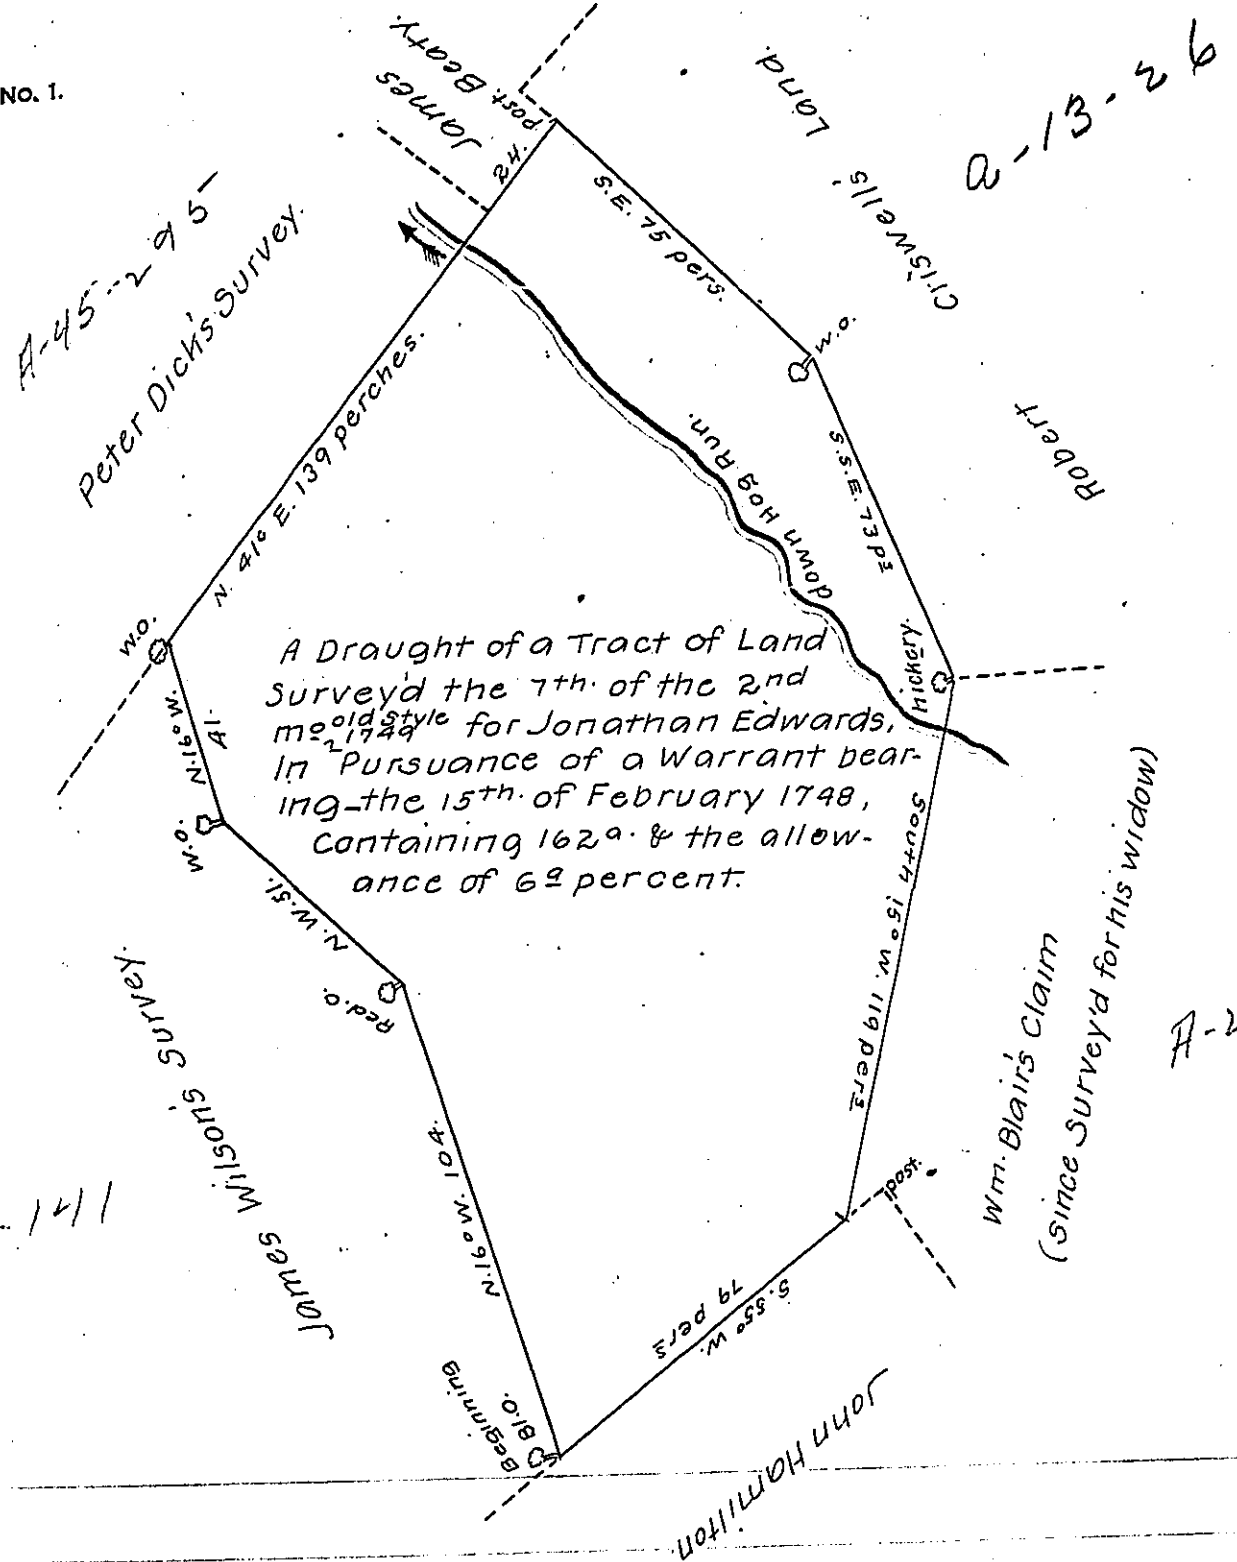 No. 1.
a-13-26
A-45-295
Peter Dick's Survey.
James
Beaty.
post.
24.
N. 41° E. 139 perches.
S.E. 75 pers.
Robert
Criswells'
Land.
W.O.
S.S.E. 73 ps
down Hog Run.
hickery.
W.O.
N.16° W.
41.
W.O.
N.W.51.
Red.O.
A Draught of a Tract of Land
Survey'd the 7th. of the 2nd
mo old style 1749 for Jonathan Edwards,
In Pursuance of a Warrant bear-
ing the 15th. of February 1748,
Containing 162a. & the allow-
ance of 6a percent.
South 15° W. 119 pers
Wm. Blair's Claim
(since Survey'd for his widow)
A-2
James Wilson's Survey.
141
N.16° W. 104.
post.
S.55° W.
79 pers
Beginning
Bl.O.
John Hamilton.